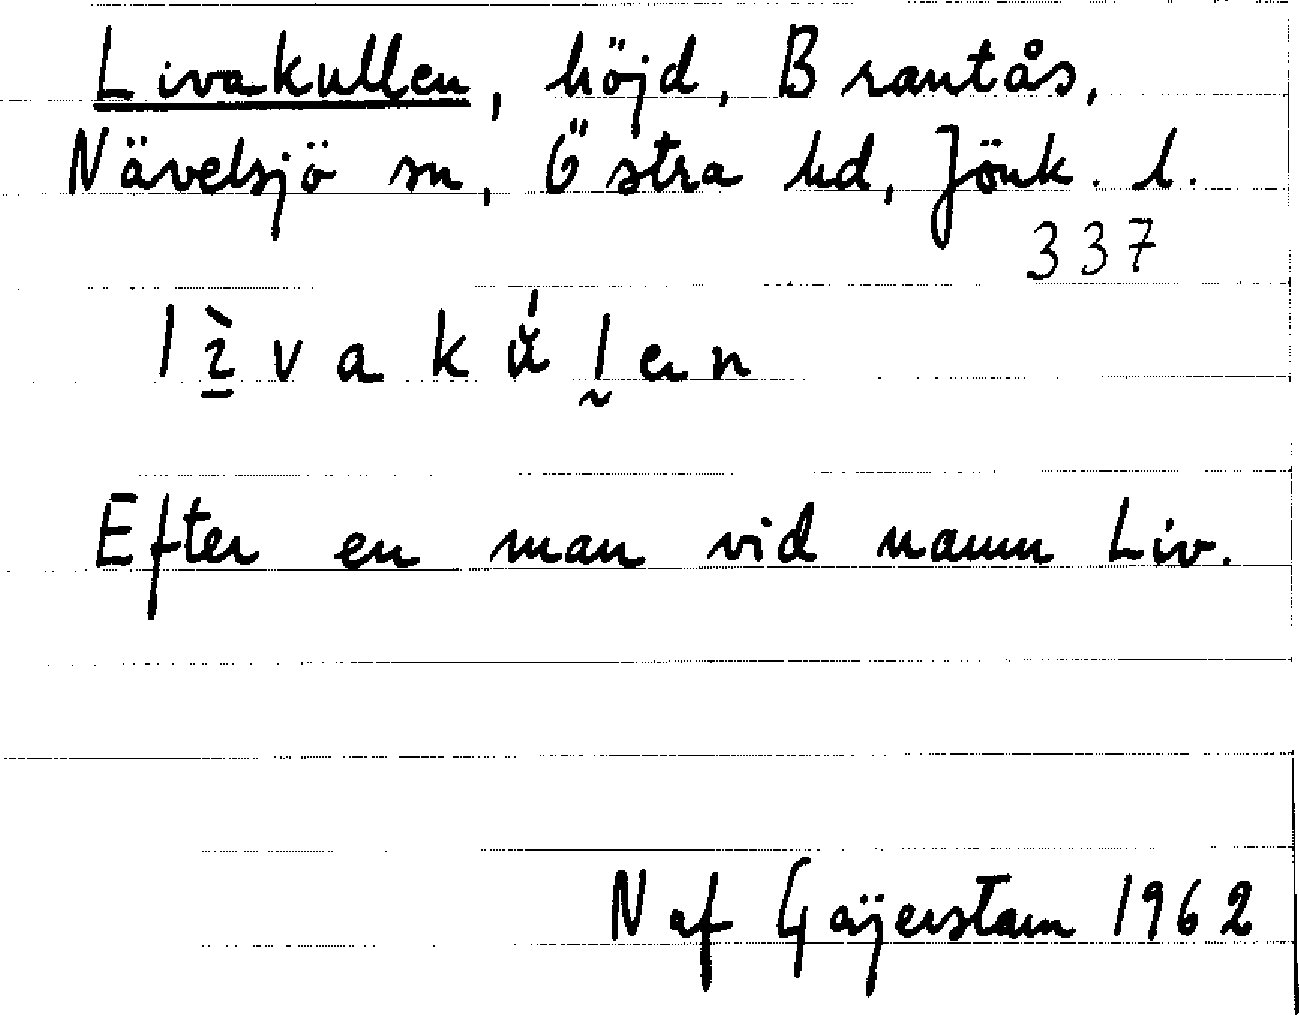 Livakullen, höjd, Brantås,
Nävelsjö sn, Östra hd, Jönk. l.
337
lı̠̀vakú̌l̰en
Efter en man vid namn Liv.
N af Gäijerstam 1962